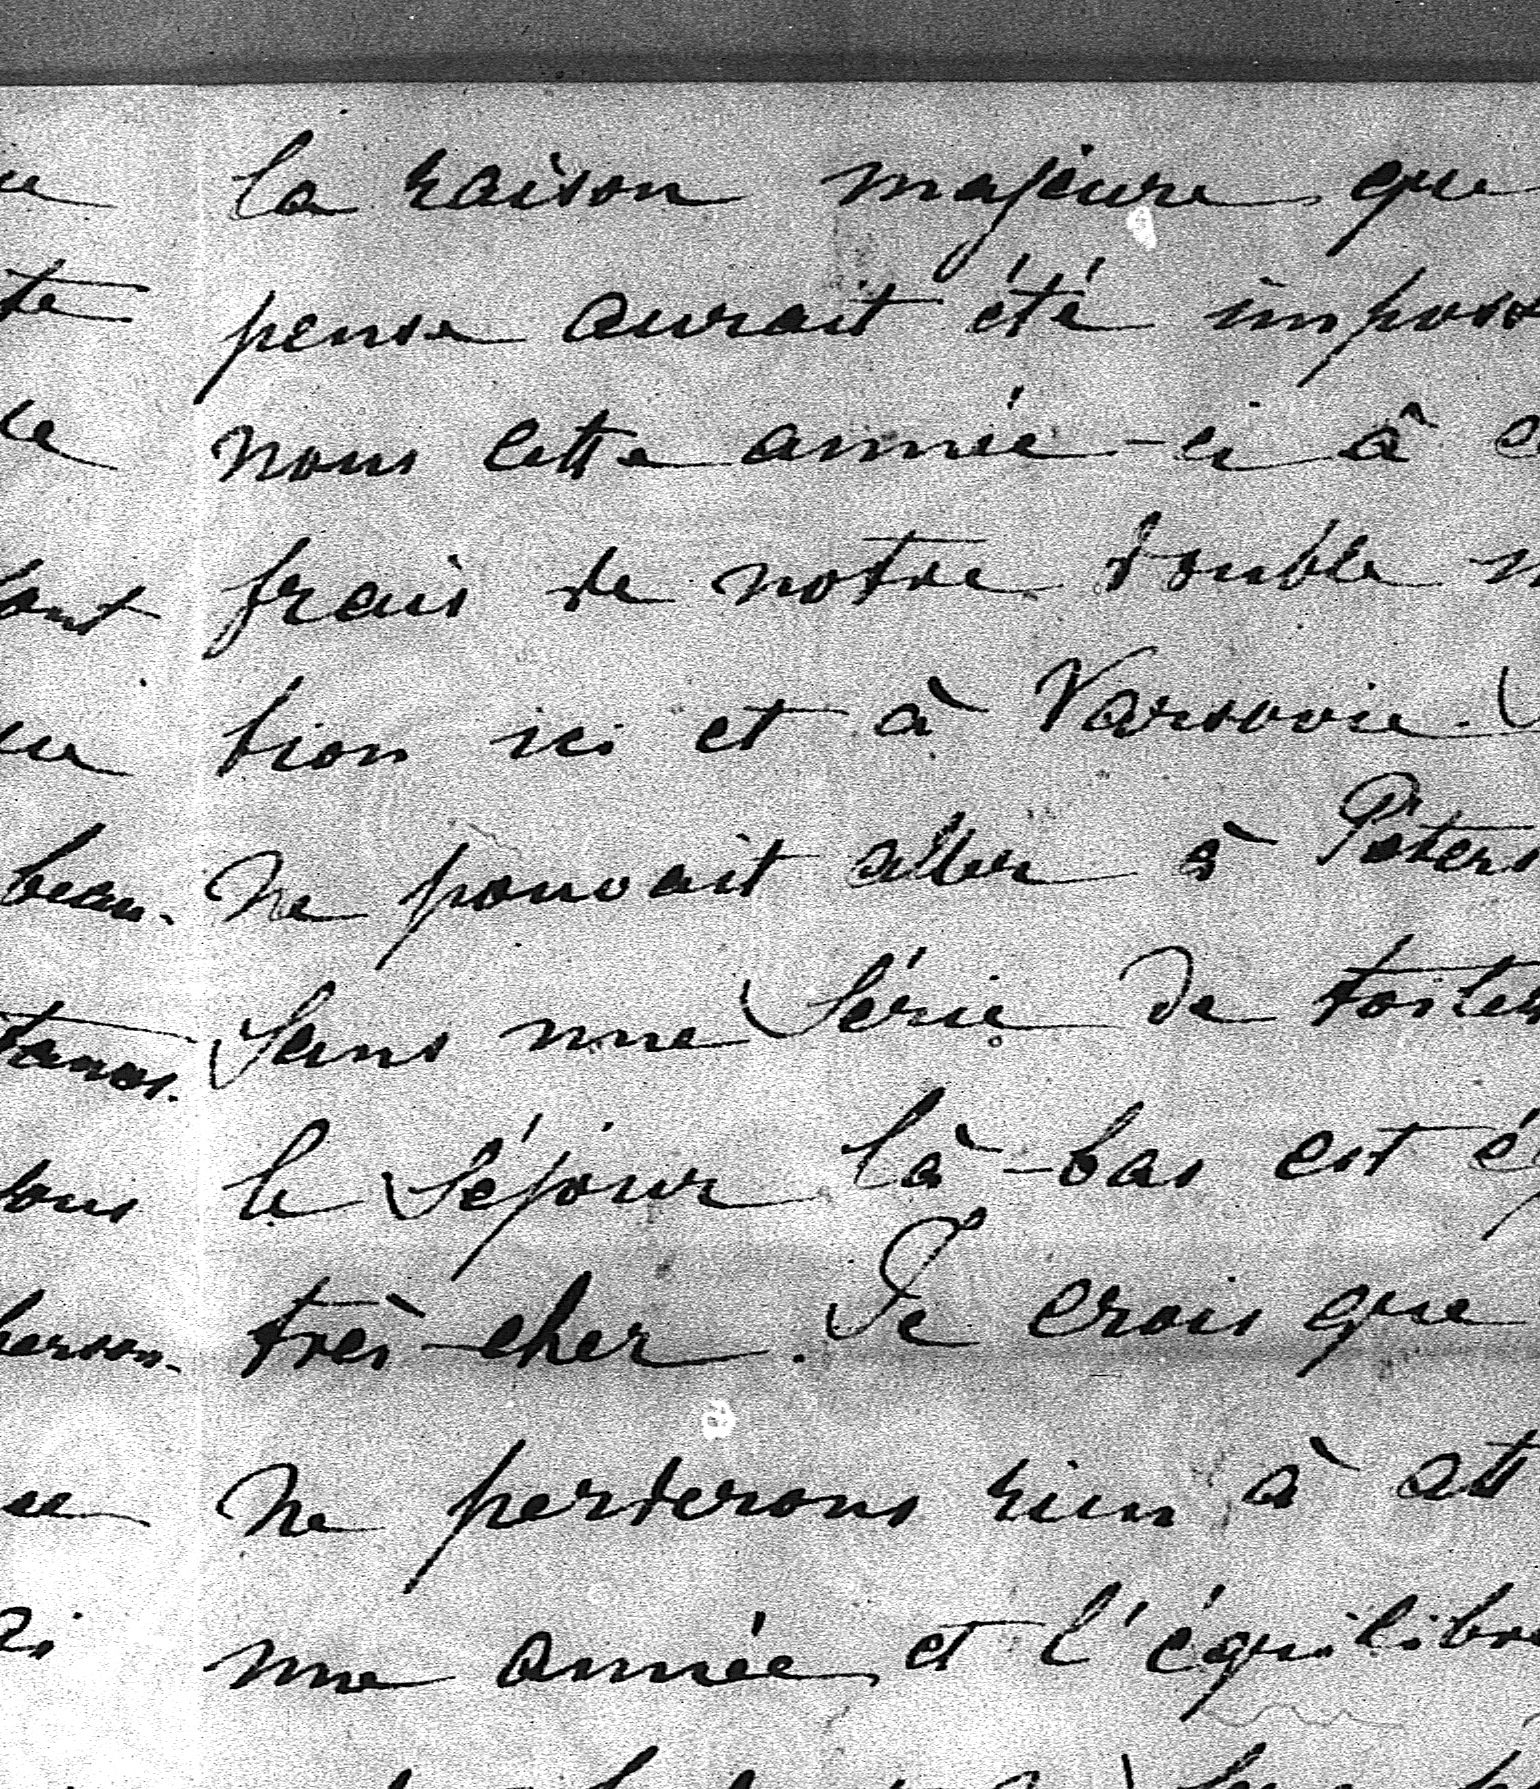 la raison majeure que
pense aurait été impos
nous cette année-ci à
frais de notre double
tion ici et à Varsovie.
beau- ne pouvait aller à Péters
sans une série de toilet
le séjour là-bas est
très-cher. Je crois que
ne perderons rien à att
une année et l'équilibre